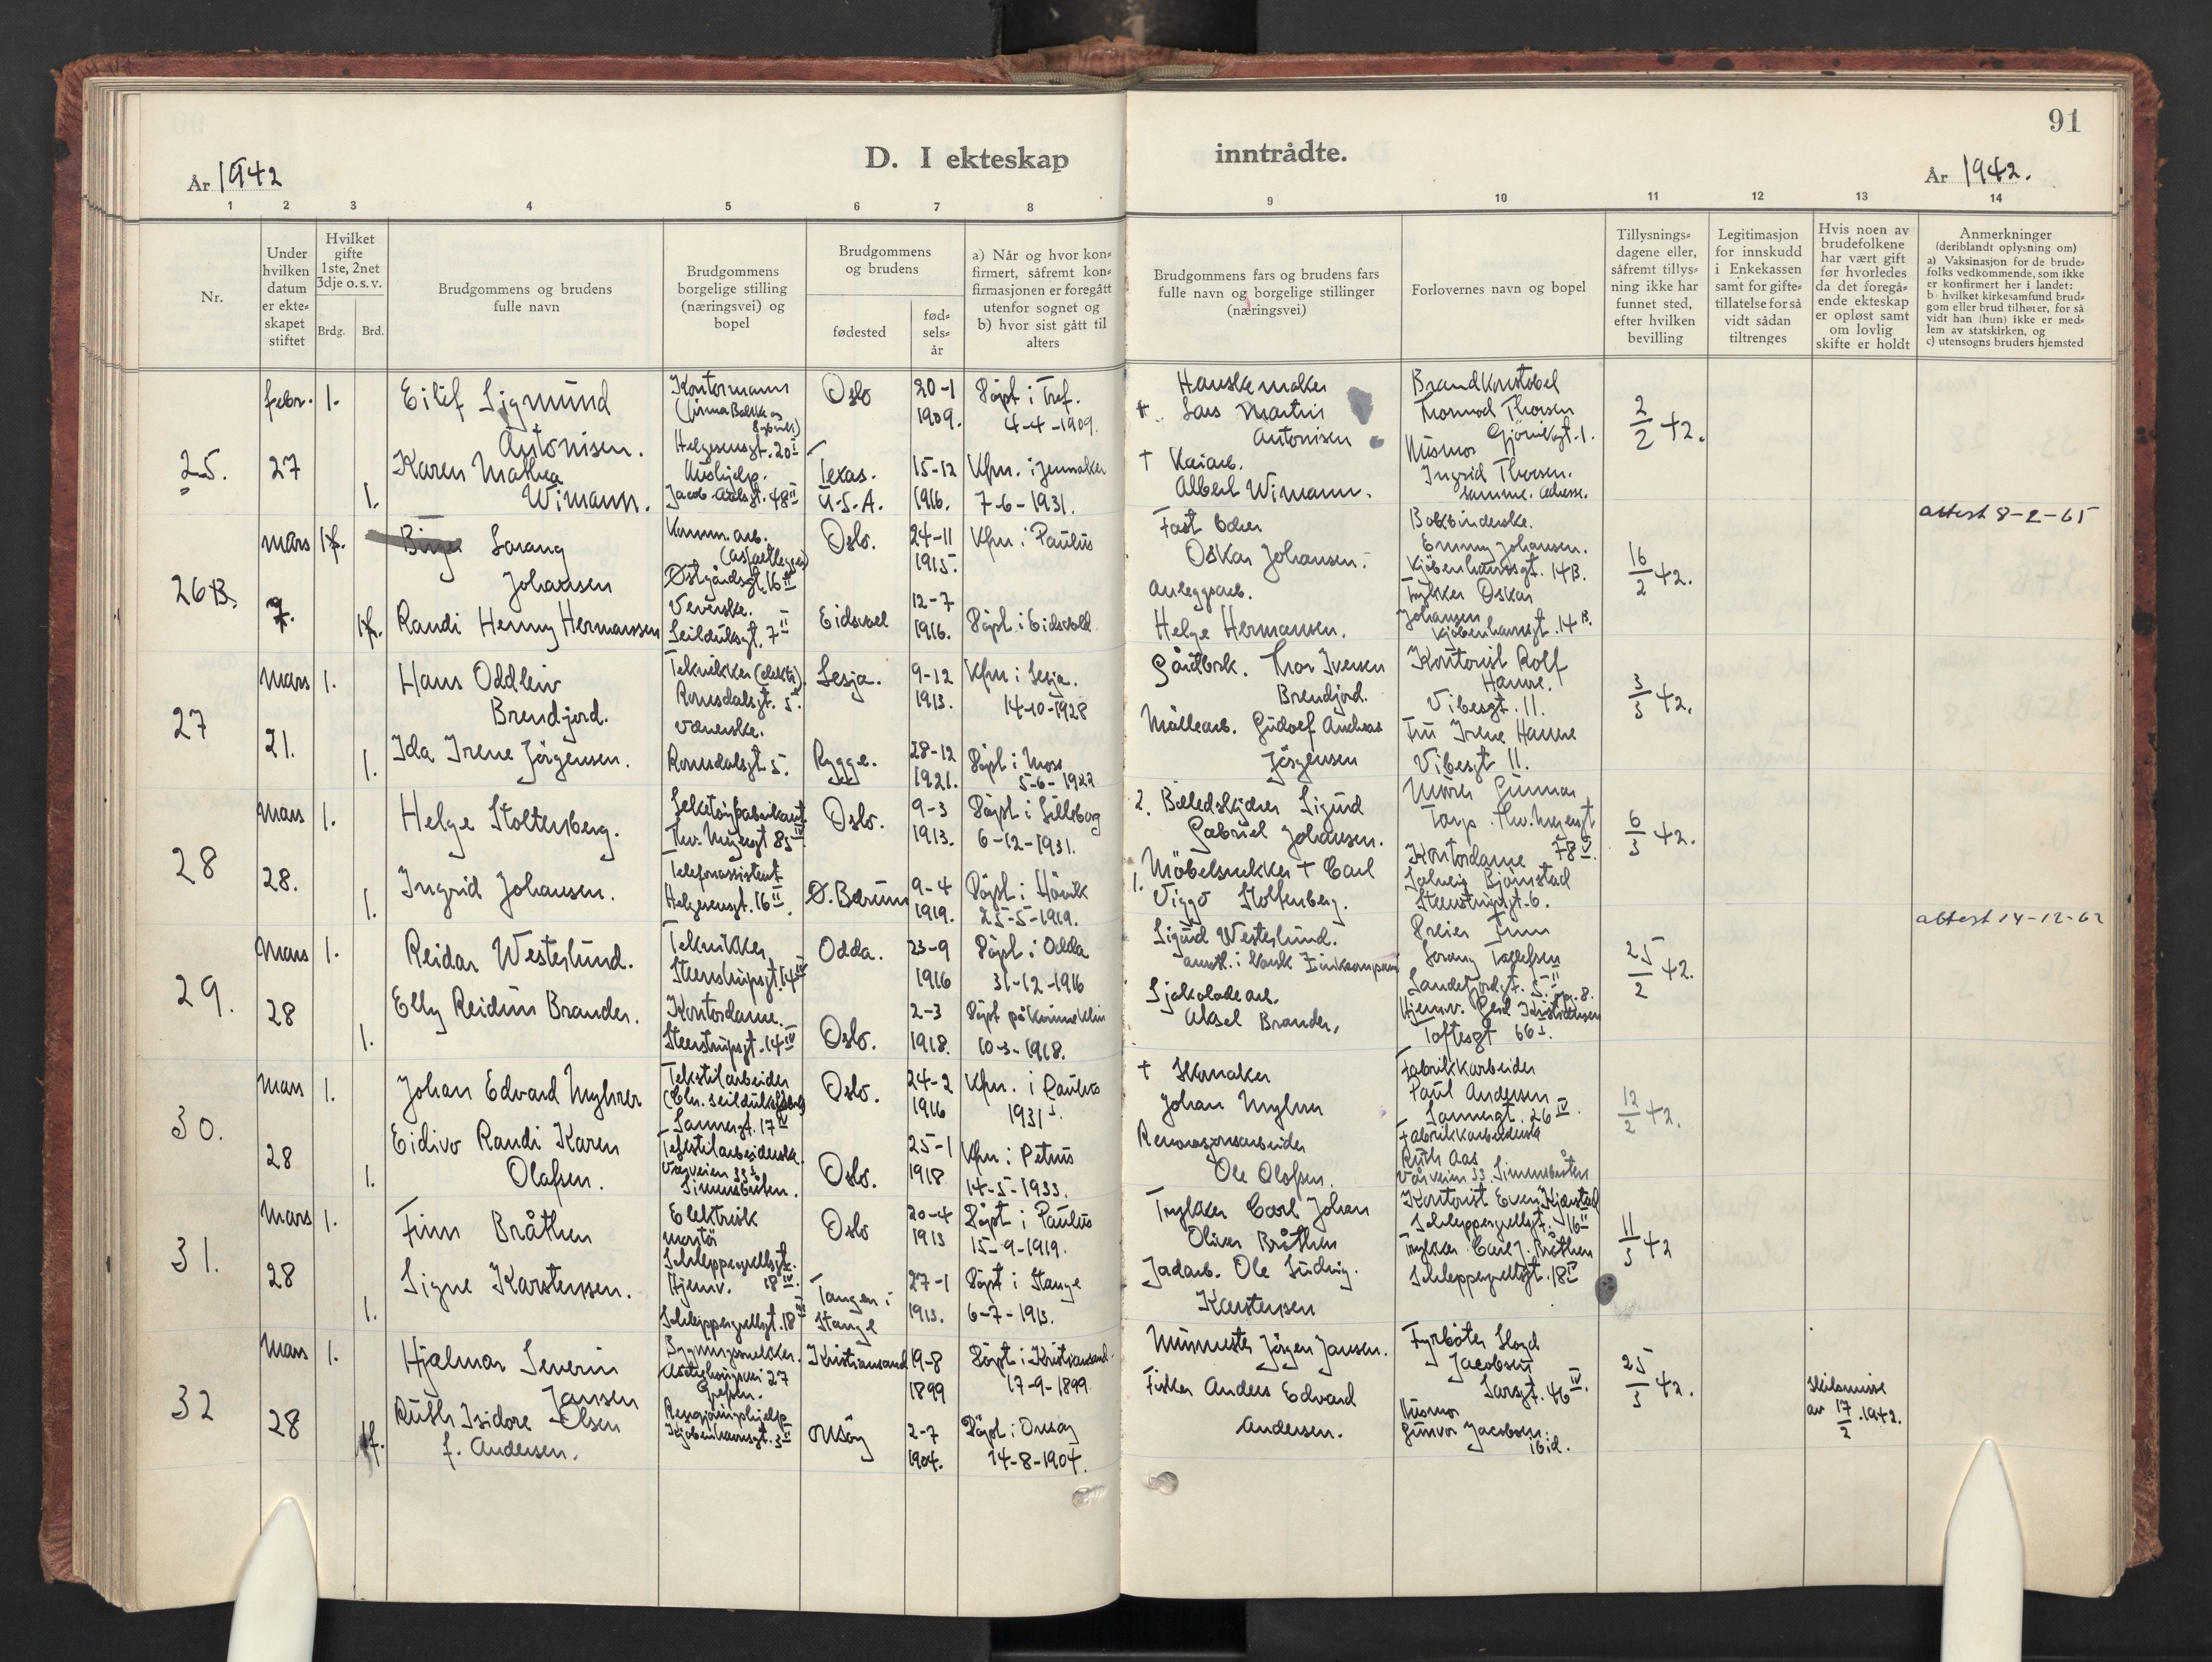 91
D. I ekteskap inntrådte.
År 1942
År 1942.
1 2 3 4 5 6 7 8 9 10 11 12 13 14
Nr.
Under hvilken datum er ekte-skapet stiftet
Hvilket gifte 1ste, 2net 3dje o. s. v.
Brdg. Brd.
Brudgommens og brudens fulle navn
Brudgommens borgelige stilling (næringsvei) og bopel
Brudgommens og brudens
fødested
fød-sels-år
a) Når og hvor kon-firmert, såfremt kon-firmasjonen er foregått utenfor sognet og b) hvor sist gått til alters
Brudgommens fars og brudens fars fulle navn og borgelige stillinger (næringsvei)
Forlovernes navn og bopel
Tillysnings-dagene eller, såfremt tillys-ning ikke har funnet sted, efter hvilken bevilling
Legitimasjon for innskudd i Enkekassen samt for gifte-tillatelse for så vidt sådan tiltrenges
Hvis noen av brudefolkene har vært gift før hvorledes da det foregå-ende ekteskap er opløst samt om lovlig skifte er holdt
Anmerkninger (deriblandt oplysning om) a) Vaksinasjon for de brude-folks vedkommende, som ikke er konfirmert her i landet: b) hvilket kirkesamfund brud-gom eller brud tilhører, for så vidt han (hun) ikke er med-lem av statskirken, og c) utensogns bruders hjemsted
25.
febr. 27
1.
Eilif Sigmund
Antonisen.
Kontormann
Helgesensgt. 20 I
Oslo
20-1
1909.
Døpt i Tref.
4-4-1909.
Hanskemaker
† Lars Martin
Antonisen
Brandkonstabel
Tormod Thorsen
Gjøvikgt. 1.
2/2 42.
1.
Karen Mathea
Wimann.
Hushjelp.
Jacob Aallsgt. 48 II
Texas.
U.S.A.
15-12
1916.
Kfm. i Jennaker
7-6-1931.
† Kaiarb.
Albert Wimann.
Husmor
Ingrid Thorsen.
samme. adresse.
26 B.
mars 7.
Birger Sørang
Johansen
Komm. arb.
Østgårdsgt. 16 II
Oslo.
24-11
1915.
Kfm. i Paulus
Fast
Oskar Johansen.
Bokbinderske.
Emmy Johansen.
Kjøbenhavnsgt. 14 B.
16/2 42.
attest 8-2-65
Randi Henny Hermansen
Veverske.
Seilduksgt. 7 II
Eidsvol
12-7
1916.
Døpt i Eidsvold
Anleggsarb.
Helge Hermansen.
Trykker Oskar
Johansen
Kjøbenhavnsgt. 14 B.
27
mars 21.
1.
Hans Oddleiv
Brendjord.
Teknikker (elektr.)
Romsdalsgt. 5.
Lesja.
9-12
1913.
Kfm i Lesja.
14-10-1928
Gårdbrk. Thor Iversen
Brendjord.
Kontorist Rolf
Hanne.
Vibesgt. 11.
3/3 42.
1.
Ida Irene Jørgensen.
Romsdalsgt 5.
Rygge.
28-12
1921.
Døpt i Moss
5-6-1922
Møllearb. Gudolf Andreas
Jørgensen
Fru Irene Hanne
Vibesgt 11.
28
mars 28.
1.
Helge Stoltenberg.
Thv. Meyersgt 85 IV
Oslo.
9-3
1913.
Døpt i Lilleborg
6-12-1931.
2. Billedskjærer Sigurd
Gabriel Johansen.
Murer Gunnar
Torp. Thv. Meyersgt
78 V.
6/3 42.
1.
Ingrid Johansen.
Telefonassistent
Helgesensgt. 16 II.
Ø. Bærum
9-4
1919.
Døpt i Høvik
25-5-1919.
1. Møbelsnekker † Carl
Viggo Stoltenberg.
Kontordame
Solveig Bjørnstad
Steenstrupsgt. 6.
29.
Mars 28
1.
Reidar Westerlund.
Teknikker
Steenstrupsgt. 14 IV
Odda.
23-9
1916
Døpt i Odda
31-12-1916
Sigurd Westerlund.
ansatt. i Norsk Zinkkompani
Finn
Sørang Tollefsen
Sandefjordgt. 5 II opp. 8.
25/2 42.
attest 14-12-62
1.
Elly Reidun Brander.
Kontordame.
Steenstrupsgt. 14 IV
Oslo.
2-3
1918.
Døpt på Kvinneklin
10-3-1918.
Sjokoladearb.
Aksel Brander,
Hjemv. Gerd Kristiansen
Toftesgt 66 I.
30.
Mars 28
1.
Johan Edvard Myhrer
Tekstilarbeider
Sannergt. 17 IV
Oslo.
24-2
1916
Kfm. i Paulus
1931
† Skomaker
Johan Myhrer
Fabrikkarbeider
Paul Andersen
Sannergt. 26 IV.
12/2 42.
1.
Eidivo Randi Karen
Olafsen.
Tekstilarbeiderske
Vårveien 33
Simensbråten.
Oslo.
25-1
1918
Kfm i Petrus
14-5-1933.
Renovasjonsarbeider
Ole Olafsen.
Fabrikkarbeiderske
Ruth Aas
Vårveien 33 Simensbråten
31.
Mars 28
1.
Finn Bråthen
Elektrisk
montør
Schleppegrellsgt.
18 IV.
Oslo
20-4
1913
Døpt i Paulus
15-9-1919.
Trykker Carl Johan
Oliver Bråthen
Kontorist Even Kjærstad
Schleppegrellsgt. 16 II
11/3 42
1.
Signe Karstensen.
Hjemv.
Schleppegrellsgt. 18 IV
Tangen i
Stange
27-1
1913.
Døpt i Stange
6-7-1913.
Jordarb. Ole Ludvig.
Karstensen
Trykker Carl J. Bråthen
Schleppegrellsgt. 18 IV
32
Mars 28
1.
Hjalmar Severin
Jansen
Bygningssnekker.
27
Grefsen.
Kristiansand
19-8
1899
Døpt i Kristiansand.
17-9-1899
Murmester Jörgen Jansen.
Fyrbøter Lloyd
Jacobsen
Sarsgt. 46 IV.
25/3 42.
Skilsmisse
av 17/2.1942.
1 f.
Ruth Isidore Olsen
f. Andersen.
Rengjöringshjelp
Kjøbenhavnsgt. 3 II
Onsöy
2-7
1904.
Døpt i Onsöy
14-8-1904.
Fisker Anders Edvard
Andersen.
Husmor
Gunvor Jacobsen.
ibid.